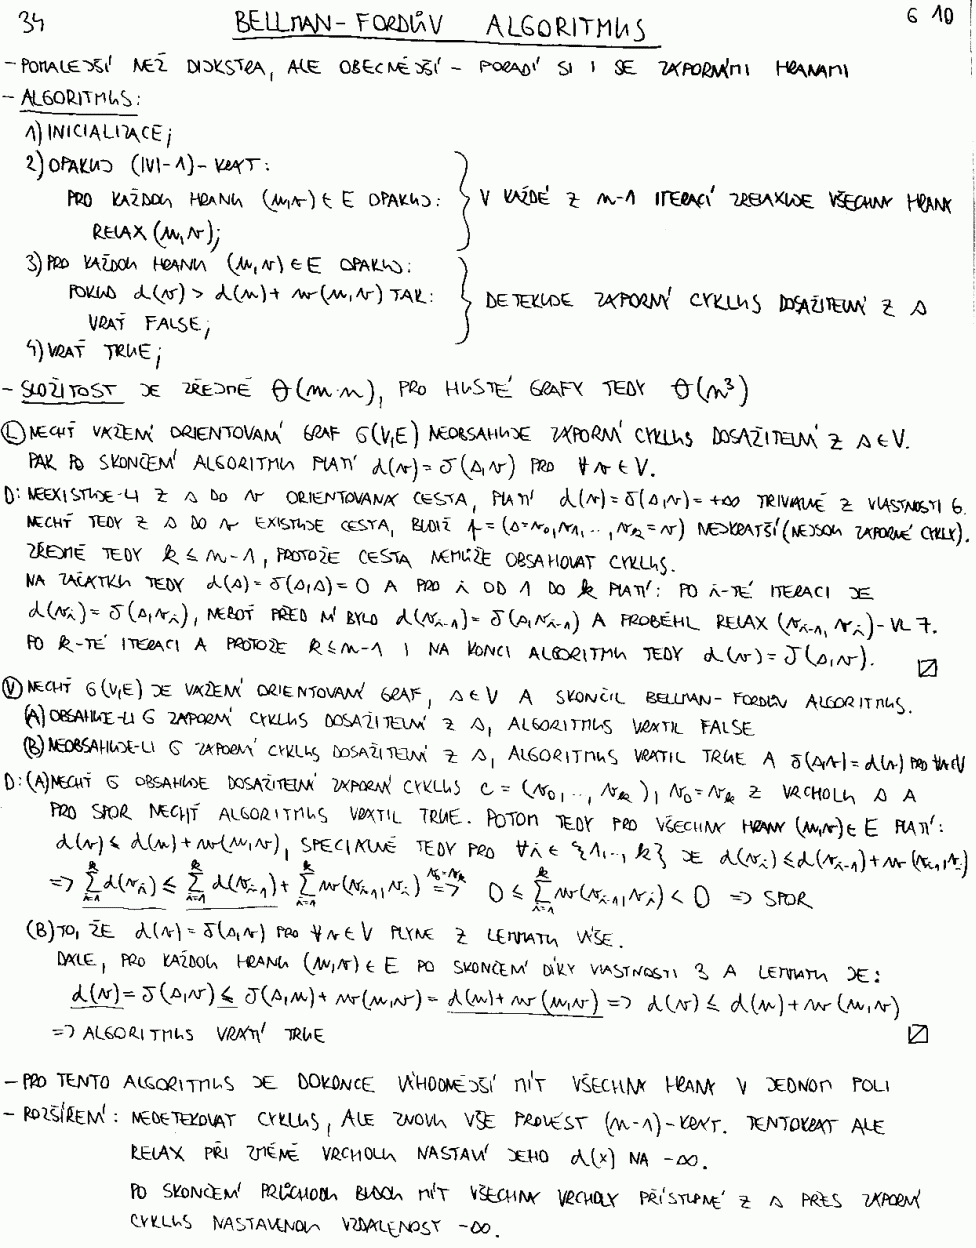 34 BELLMAN-FORDŮV ALGORITMUS G 10
- POMALEJŠÍ NEŽ DIJKSTRA, ALE OBECNĚJŠÍ - PORADÍ SI I SE ZÁPORNÝMI HRANAMI
- ALGORITMUS:
1) INICIALIZACE;
2) OPAKUJ (|V|-1)-KRÁT:
PRO KAŽDOU HRANU (u,v) ∈ E OPAKUJ: } V KAŽDÉ Z n-1 ITERACÍ ZRELAXUJE VŠECHNY HRANY
RELAX (u,v);
3) PRO KAŽDOU HRANU (u,v) ∈ E OPAKUJ:
POKUD d(v) > d(u) + w(u,v) TAK: } DETEKUJE ZÁPORNÝ CYKLUS DOSAŽITELNÝ Z s
VRAŤ FALSE;
4) VRAŤ TRUE;
- SLOŽITOST JE ZŘEJMĚ Θ(m·n), PRO HUSTÉ GRAFY TEDY Θ(n³)
(L) NECHŤ VÁŽENÝ ORIENTOVANÝ GRAF G(V,E) NEOBSAHUJE ZÁPORNÝ CYKLUS DOSAŽITELNÝ Z s ∈ V.
PAK PO SKONČENÍ ALGORITMU PLATÍ d(v) = δ(s,v) PRO ∀v ∈ V.
D: NEEXISTUJE-LI Z s DO v ORIENTOVANÁ CESTA, PLATÍ d(v) = δ(s,v) = +∞ TRIVIÁLNĚ Z VLASTNOSTI 6.
NECHŤ TEDY Z s DO v EXISTUJE CESTA, BUDIŽ p = (s=v₀,v₁,..,vₖ=v) NEJKRATŠÍ (NEJSOU ZÁPORNÉ CYKLY).
ZŘEJMĚ TEDY k ≤ n-1, PROTOŽE CESTA NEMŮŽE OBSAHOVAT CYKLUS.
NA ZAČÁTKU TEDY d(s) = δ(s,s) = 0 A PRO i OD 1 DO k PLATÍ: PO i-TÉ ITERACI JE
d(vᵢ) = δ(s,vᵢ), NEBOŤ PŘED NÍ BYLO d(vᵢ₋₁) = δ(s,vᵢ₋₁) A PROBĚHL RELAX (vᵢ₋₁,vᵢ) - VL 7.
PO k-TÉ ITERACI A PROTOŽE k ≤ n-1 I NA KONCI ALGORITMU TEDY d(v) = δ(s,v).
(V) NECHŤ G(V,E) JE VÁŽENÝ ORIENTOVANÝ GRAF, s ∈ V A SKONČIL BELLMAN-FORDŮV ALGORITMUS.
(A) OBSAHUJE-LI G ZÁPORNÝ CYKLUS DOSAŽITELNÝ Z s, ALGORITMUS VRÁTIL FALSE
(B) NEOBSAHUJE-LI G ZÁPORNÝ CYKLUS DOSAŽITELNÝ Z s, ALGORITMUS VRÁTIL TRUE A δ(s,v) = d(v) PRO ∀v∈V
D: (A) NECHŤ G OBSAHUJE DOSAŽITELNÝ ZÁPORNÝ CYKLUS c = (v₀,..,vₖ), v₀=vₖ Z VRCHOLU s A
PRO SPOR NECHŤ ALGORITMUS VRÁTIL TRUE. POTOM TEDY PRO VŠECHNY HRANY (u,v) ∈ E PLATÍ:
d(v) ≤ d(u) + w(u,v), SPECIÁLNĚ TEDY PRO ∀i ∈ {1,..,k} JE d(vᵢ) ≤ d(vᵢ₋₁) + w(vᵢ₋₁,vᵢ)
=> Σᵢ₌₁ᵏ d(vᵢ) ≤ Σᵢ₌₁ᵏ d(vᵢ₋₁) + Σᵢ₌₁ᵏ w(vᵢ₋₁,vᵢ) =>(v₀=vₖ) 0 ≤ Σᵢ₌₁ᵏ w(vᵢ₋₁,vᵢ) < 0 => SPOR
(B) TO, ŽE d(v) = δ(s,v) PRO ∀v ∈ V PLYNE Z LEMMATU VÝŠE.
DÁLE, PRO KAŽDOU HRANU (u,v) ∈ E PO SKONČENÍ DÍKY VLASTNOSTI 3 A LEMMATU JE:
d(v) = δ(s,v) ≤ δ(s,u) + w(u,v) = d(u) + w(u,v) => d(v) ≤ d(u) + w(u,v)
=> ALGORITMUS VRÁTÍ TRUE
- PRO TENTO ALGORITMUS JE DOKONCE VÝHODNĚJŠÍ MÍT VŠECHNY HRANY V JEDNOM POLI
- ROZŠÍŘENÍ: NEDETEKOVAT CYKLUS, ALE ZNOVU VŠE PROVÉST (n-1)-KRÁT. TENTOKRÁT ALE
RELAX PŘI ZMĚNĚ VRCHOLU NASTAVÍ JEHO d(x) NA -∞.
PO SKONČENÍ PRŮCHODU BUDOU MÍT VŠECHNY VRCHOLY PŘÍSTUPNÉ Z s PŘES ZÁPORNÝ
CYKLUS NASTAVENOU VZDÁLENOST -∞.